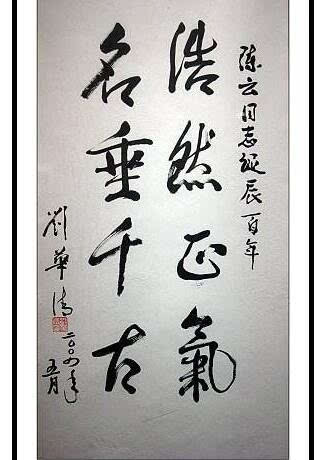 陈云同志诞辰百年
浩然正氣
名垂千古
劉華清
二〇〇四年
五月